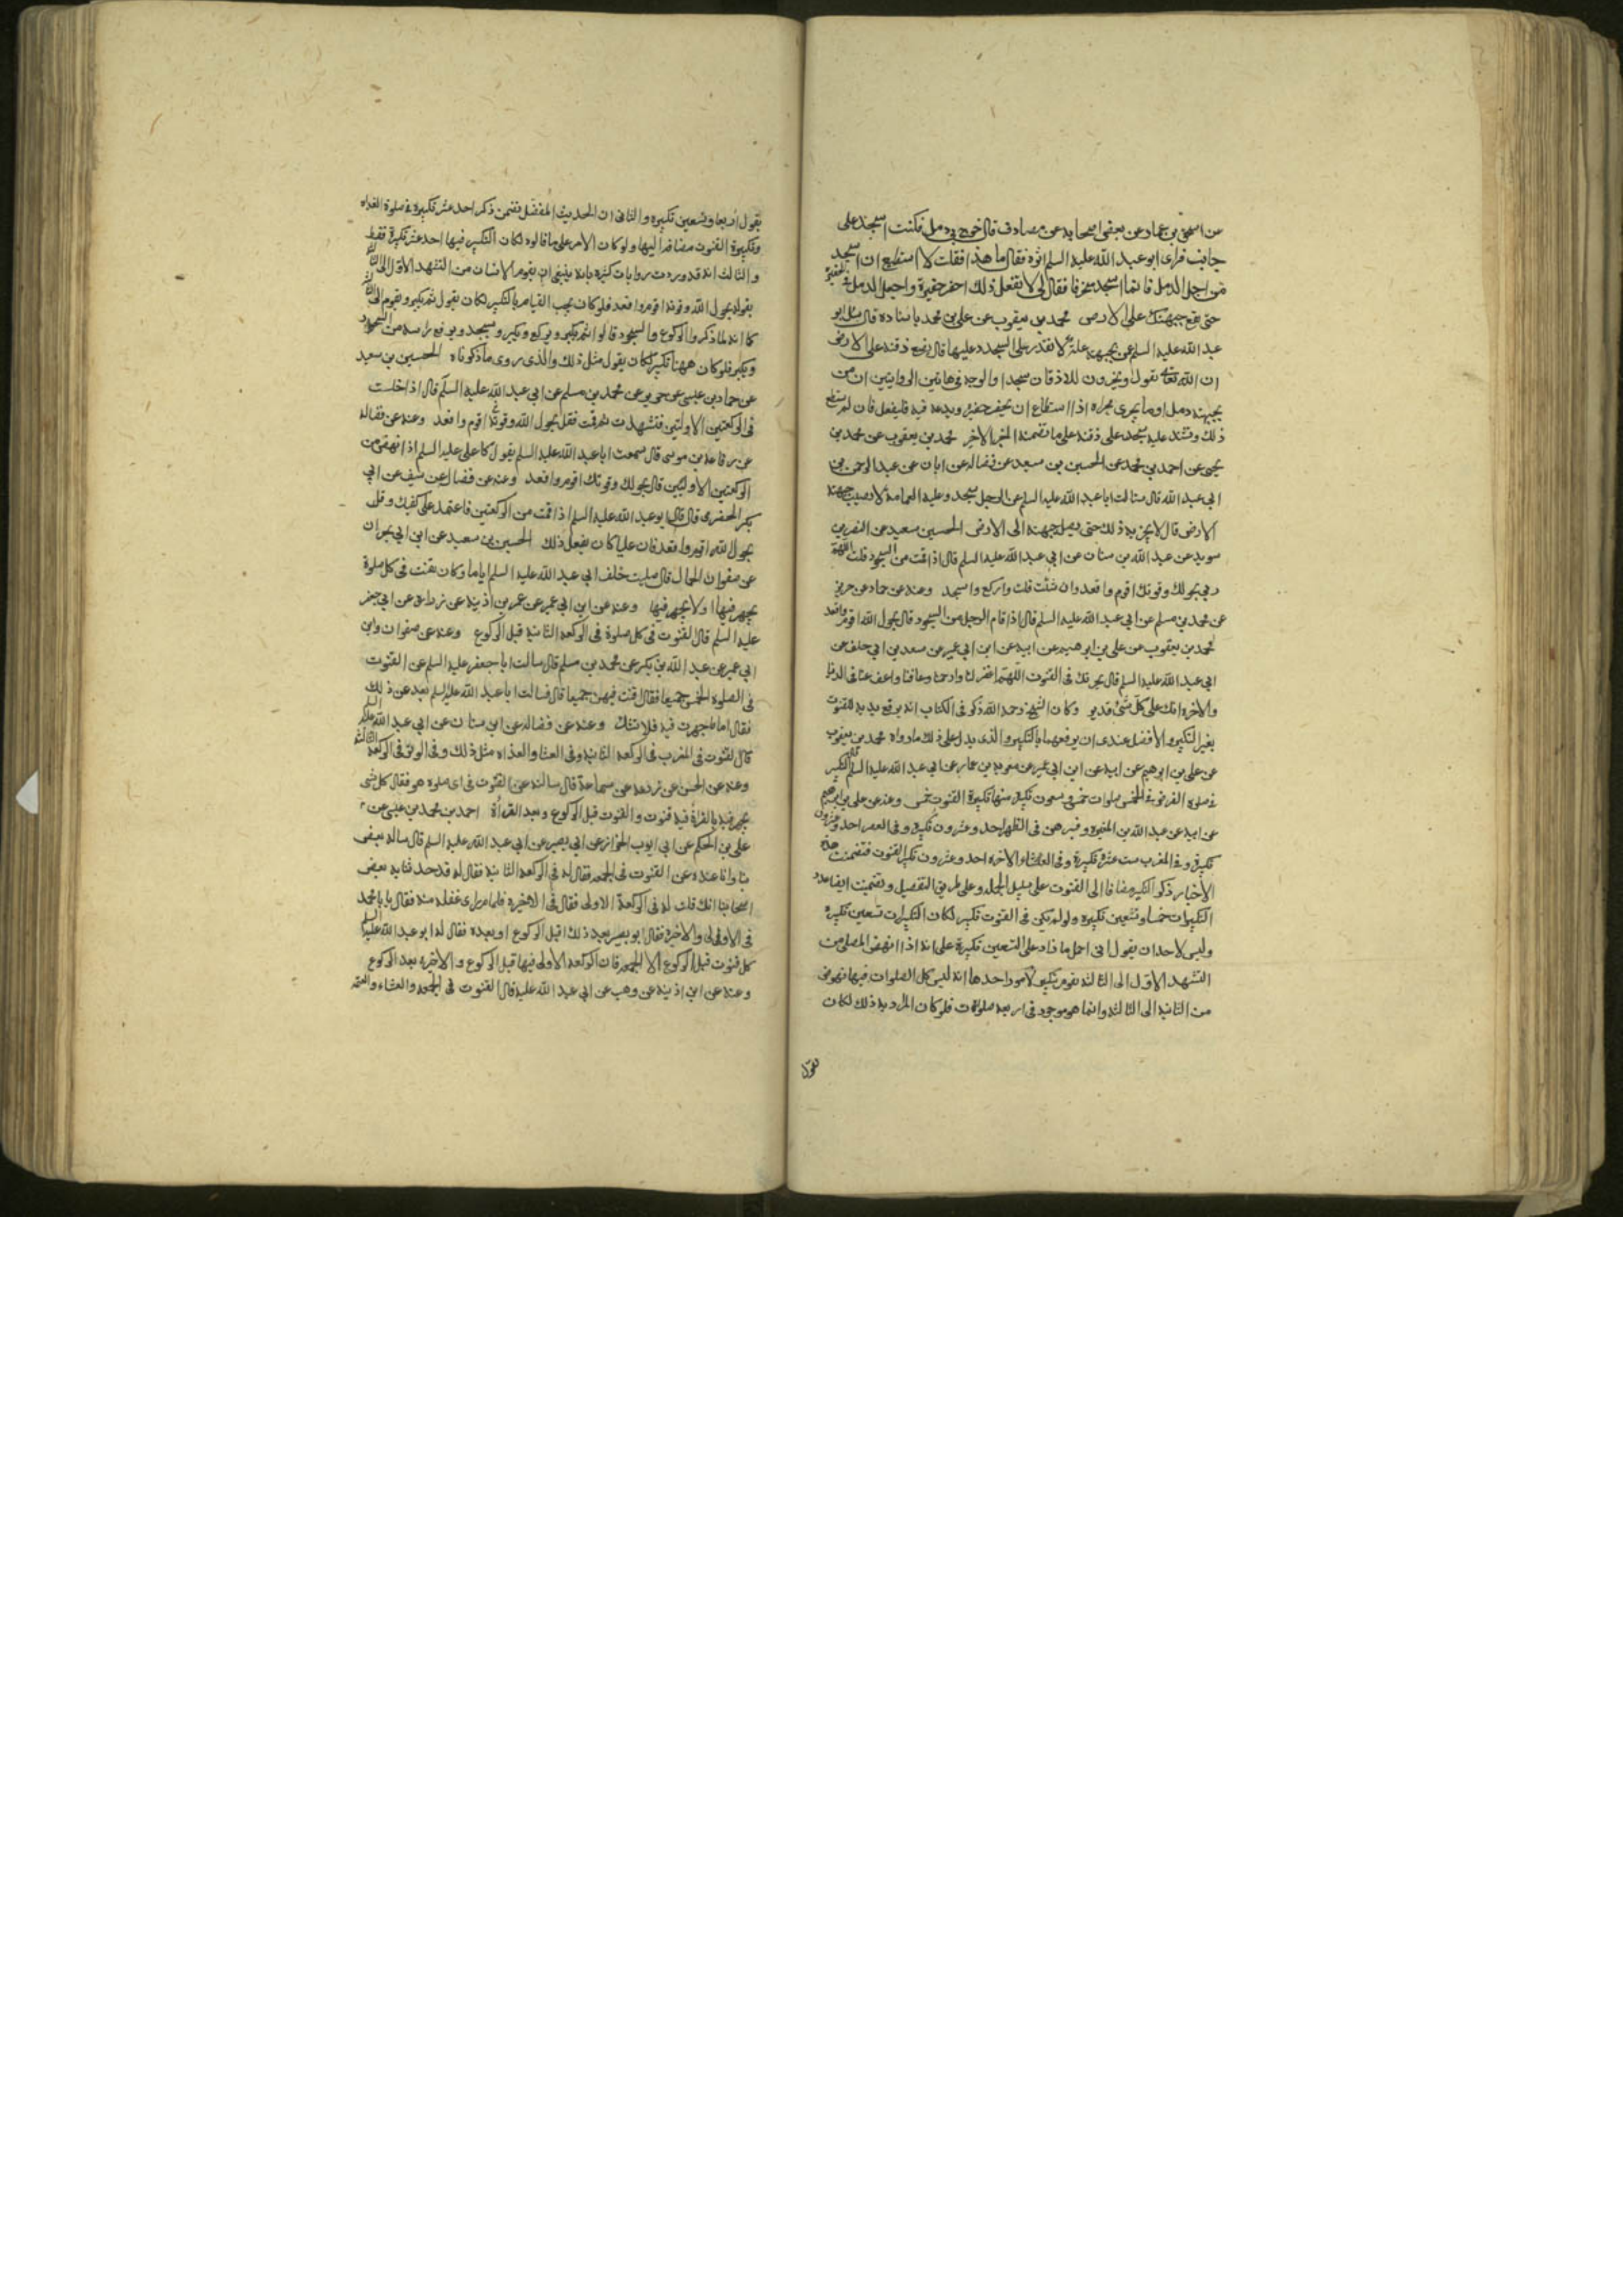 عن اسحق بن عمار عن بعض اصحابه عن مصادف قال خرج بي دمل فكنت اسجد على
جانب فراى ابو عبد الله عليه السلم اثره فقال ما هذا فقلت لا استطيع ان اسجد
من اجل الدمل فانما اسجد منحرفا فقال لي لا تفعل ذلك احفر حفيرة واجعل الدمل في الحفيرة
حتى يقع جبهتك على الارض محمد بن يعقوب عن علي بن محمد باسناده قال سئل ابو
عبد الله عليه السلم عمن بجبهته علة لا يقدر على السجود عليها قال يضع ذقنه على الارض
ان الله تعالى يقول ويخرون للاذقان سجدا والوجه في هاتين الروايتين ان من
بجبهته دمل او ما يجري مجراه اذا استطاع ان يحفر حفيرة ويدعه فيه فليفعل فان لم يستطع
ذلك وشتد عليه سجد على ذقنه على ما تضمنه الخبر الاخر محمد بن يعقوب عن محمد بن
يحيى عن احمد بن محمد عن الحسين بن سعيد عن فضالة عن ابان عن عبد الرحمن بن
ابي عبد الله قال سالت ابا عبد الله عليه السلم عن الرجل يسجد وعليه العمامة لا يصيب جبهته
الارض قال لا يجزيه ذلك حتى يصل جبهته الى الارض الحسين سعيد عن النضر بن
سويد عن عبد الله بن سنان عن ابي عبد الله عليه السلم قال اذا قمت من السجود قلت اللهم
ربي بحولك وقوتك اقوم واقعد وان شئت قلت واركع واسجد وعنه عن حماد عن حريز
عن محمد بن مسلم عن ابي عبد الله عليه السلم قال اذا قام الرجل من السجود قال بحول الله اقوم واقعد
محمد بن يعقوب عن علي بن ابرهيم عن ابيه عن ابن ابي عمير عن سعد بن ابي خلف عن
ابي عبد الله عليه السلم قال يجزيك في القنوت اللهم اغفر لنا وارحمنا وعافنا واعف عنا في الدنيا
والاخرة انك على كل شئ قدير وكان الشيخ رحمه الله ذكر في الكتاب انه يرفع يديه للقنوت
بغير التكبير والافضل عندي ان يرفعهما بالتكبير والذي يدل على ذلك ما رواه محمد بن يعقوب
عن علي بن ابرهيم عن ابيه عن ابن ابي عمير عن معوية بن عمار عن ابي عبد الله عليه السلم قال التكبير
في صلوة الفرض في الخمس صلوات خمس وتسعون تكبيرة منها تكبيرة القنوت خمس وعنه عن علي بن ابرهيم
عن ابيه عن عبد الله بن المغيرة وفسرهن في الظهر احد وعشرون تكبيرة وفي العصر احد وعشرون
تكبيرة وفي المغرب ست عشرة تكبيرة وفي العشاء الاخرة احد وعشرون تكبيرة القنوت فتضمنت هذه
الاخبار ذكر التكبير مضافا الى القنوت على سبيل الجملة وعلى طريق التفصيل وتضمنت ايضا عدد
التكبيرات خمسا وتسعين تكبيرة ولو لم يكن في القنوت تكبير لكان التكبيرات تسعين تكبيرة
وليس لاحد ان يقول انى احمل ما زاد على التسعين تكبيرة على انه اذا انهض المصلي من
التشهد الاول الى الثالثة يقوم بتكبير لامور احدها انه ليس كل الصلوات فيها نهوض
من الثانية الى الثالثة وانما هو موجود في اربعة صلوات فلو كان المراد به ذلك لكان
يقول
يقول اربعا وتسعين تكبيرة والثاني ان الحديث المفضل تضمن ذكر احد عشر تكبيرة في صلوة الغداة
وتكبيرة القنوت مضافة اليها ولو كان الامر على ما قالوه لكان التكبير فيها احد عشر تكبيرة فقط
والثالث انه قد وردت روايات كثيرة بانه ينبغي ان يقوم الانسان من التشهد الاول الى الثالثة
بقوله بحول الله وقوته اقوم واقعد فلو كان يجب القيام بالتكبير لكان يقول ثم يكبر ويقوم الى الثالثة
كما انه لما ذكروا الركوع والسجود قالوا ثم يكبر ويركع ويكبر ويسجد ويرفع راسه من السجود
ويكبر فلو كان ههنا تكبير لكان يقول مثل ذلك والذي روى ما ذكرناه الحسين بن سعيد
عن حماد بن عيسى عن حريز عن محمد بن مسلم عن ابي عبد الله عليه السلم قال اذا جلست
في الركعتين الاولتين فتشهدت ثم قمت فقل بحول الله وقوته اقوم واقعد وعنه عن فضالة
عن رفاعة بن موسى قال سمعت ابا عبد الله عليه السلم يقول كان علي عليه السلم اذا نهض من
الركعتين الاولتين قال بحولك وقوتك اقوم واقعد وعنه عن فضالة عن سيف عن ابي
بكر الحضرمي قال قال ابو عبد الله عليه السلم اذا قمت من الركعتين فاعتمد على كفيك وقل
بحول الله اقوم واقعد فان عليا كان يفعل ذلك الحسين بن سعيد عن ابن ابي نجران
عن صفوان الجمال قال صليت خلف ابي عبد الله عليه السلم اياما وكان يقنت في كل صلوة
يجهر فيها او لا يجهر فيها وعنه عن ابن ابي عمير عن عمر بن اذينة عن زرارة عن ابي جعفر
عليه السلم قال القنوت في كل صلوة في الركعة الثانية قبل الركوع وعنه عن صفوان وابن
ابي عمير عن عبد الله بن بكير عن محمد بن مسلم قال سالت ابا جعفر عليه السلم عن القنوت
في الصلوة الخمس جميعا فقال اقنت فيهن جميعا قال فسالت ابا عبد الله عليه السلم بعد عن ذلك
فقال اما ما جهرت فيه فلا تشك وعنه عن فضالة عن ابن سنان عن ابي عبد الله عليه السلم
قال القنوت في المغرب في الركعة الثانية وفي العشا والغداة مثل ذلك وفي الوتر في الركعة الثالثة
وعنه عن الحسن عن زرعة عن سماعة قال سالته عن القنوت في اى صلوة هو فقال كل شى
يجهر فيه بالقراة فيه قنوت والقنوت قبل الركوع وبعد القراة احمد بن محمد بن عيسى عن
علي بن الحكم عن ابي ايوب الخزاز عن ابي بصير عن ابي عبد الله عليه السلم قال ساله بعض
وانا عنده عن القنوت في الجمعة فقال له في الركعة الثانية فقال له قد حدثنا به بعض
اصحابنا انك قلت له في الركعة الاولى فقال في الاخيرة فلما راى غفلة منه فقال يا با محمد
في الاولى والاخيرة فقال ابو بصير بعد ذلك اقبل الركوع او بعده فقال له ابو عبد الله عليه السلم
كل قنوت قبل الركوع الا الجمعة فان الركعة الاولى فيها قبل الركوع والاخيرة بعد الركوع
وعنه عن ابن اذينة عن وهب عن ابي عبد الله عليه قال القنوت في الجمعة والعشاء والعتمة